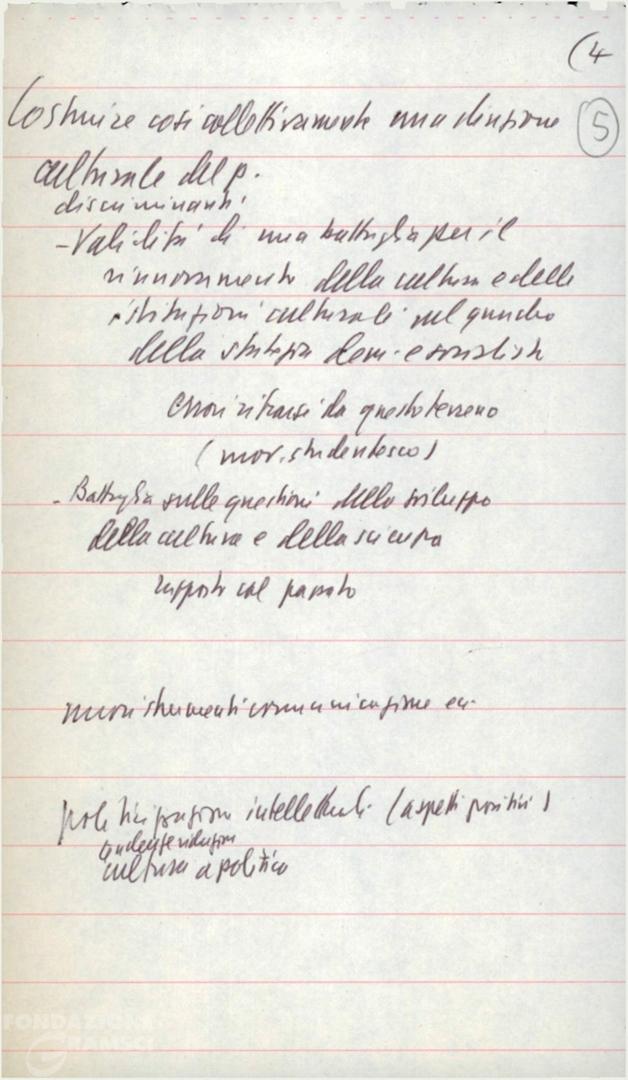 (4
5
Costruire così collettivamente una direzione
culturale del p.
discriminanti
- Validità di una battaglia per il
rinnovamento della cultura e delle
istituzioni culturali nel quadro
della strategia dem. e socialista
Errori ritrarsi da questo terreno
(mov. studentesco)
- Battaglia sulle questioni dello sviluppo
della cultura e della scienza
rapporto col passato
nuovi strumenti comunicazione ecc.
politicizzazione intellettuali (aspetti positivi)
tendenze riduzione
cultura a politico
FONDAZIONE
GRAMSCI